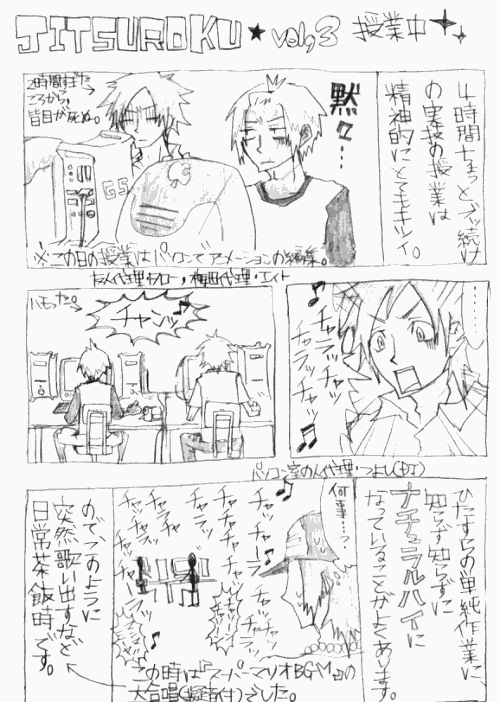 JITSUROKU★vol,3 授業中
4時間ちょっとブッ続け
の実技の授業は
精神的にとてもキツイ。
黙々…
2時間すぎた
ころから、
皆目が死ぬ。
GS
※この日の授業はパソコンでアニメーションの編集。
友人代理・ワロー、梅田代理・エイト
………
チャラッ
チャラッチャッ
チャラッチャッ
チャラッ
ハモった。
チャンッ♪
パソコン室の人代理・つよし(中1)
ひたすらの単純作業に、
知らず知らずに
ナチュラルハイに
なっていることがよくあります。
何事…?
チャラッ
チャラララ
チャッチャラ
チャーラ
チャラッチャ
この時は『スーパーマリオBGM』の
大合唱(擬音付)でした。
ので、このように
突然歌い出すなど
日常茶飯時です。